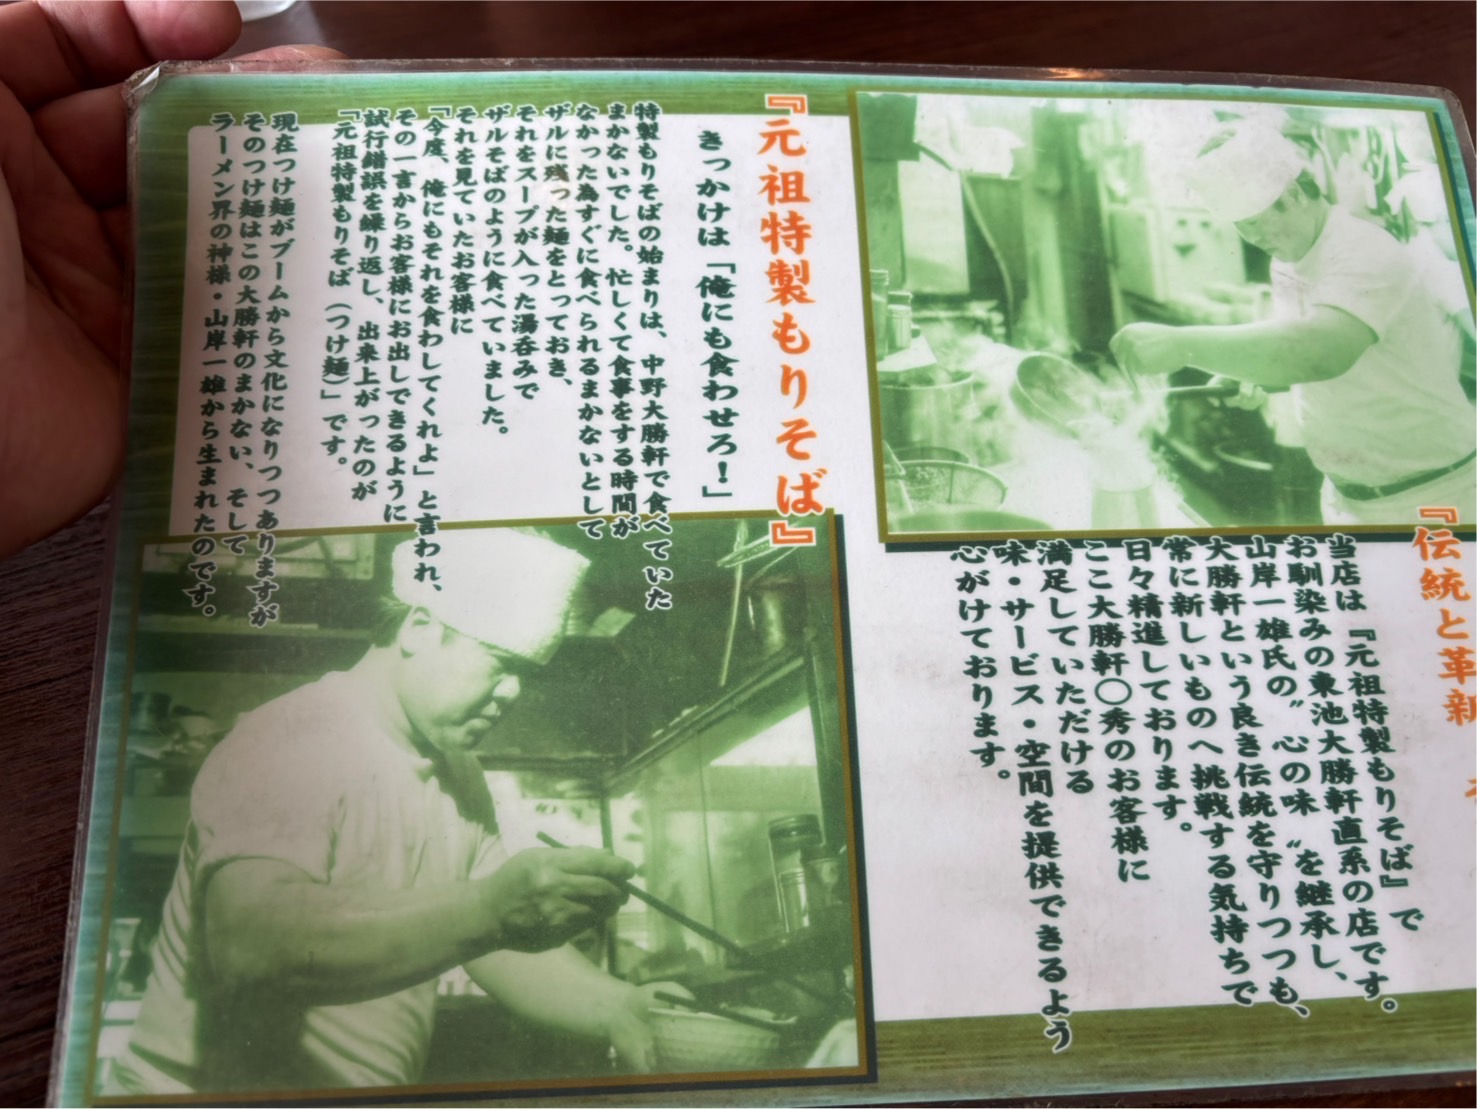 『伝統と革新
当店は『元祖特製もりそば』で
お馴染みの東池大勝軒直系の店です。
山岸一雄氏の〝心の味〟を継承し、
大勝軒という良き伝統を守りつつも、
常に新しいものへ挑戦する気持ちで
日々精進しております。
ここ大勝軒〇秀のお客様に
満足していただける
味・サービス・空間を提供できるよう
心がけております。
『元祖特製もりそば』
きっかけは「俺にも食わせろ！」
特製もりそばの始まりは、中野大勝軒で食べていた
まかないでした。忙しくて食事をする時間が
なかった為すぐに食べられるまかないとして
ザルに残った麺をとっておき、
それをスープが入った湯呑みで
ザルそばのように食べていました。
それを見ていたお客様に
「今度、俺にもそれを食わしてくれよ」と言われ、
その一言からお客様にお出しできるように
試行錯誤を繰り返し、出来上がったのが
「元祖特製もりそば（つけ麺）」です。
現在つけ麺がブームから文化になりつつありますが
そのつけ麺はこの大勝軒のまかない、そして
ラーメン界の神様・山岸一雄から生まれたのです。